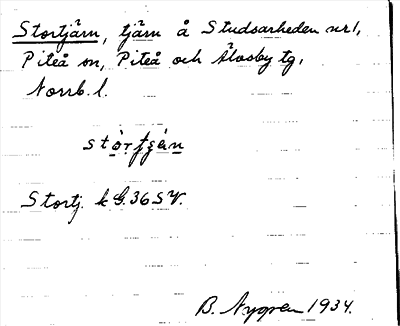 Stortjärn, tjärn å Studsarheden nr 1,
Piteå sn, Piteå och Älvsby tg,
Norrb. l.
Stortj. k G.36 SV.
B. Nygren 1934.